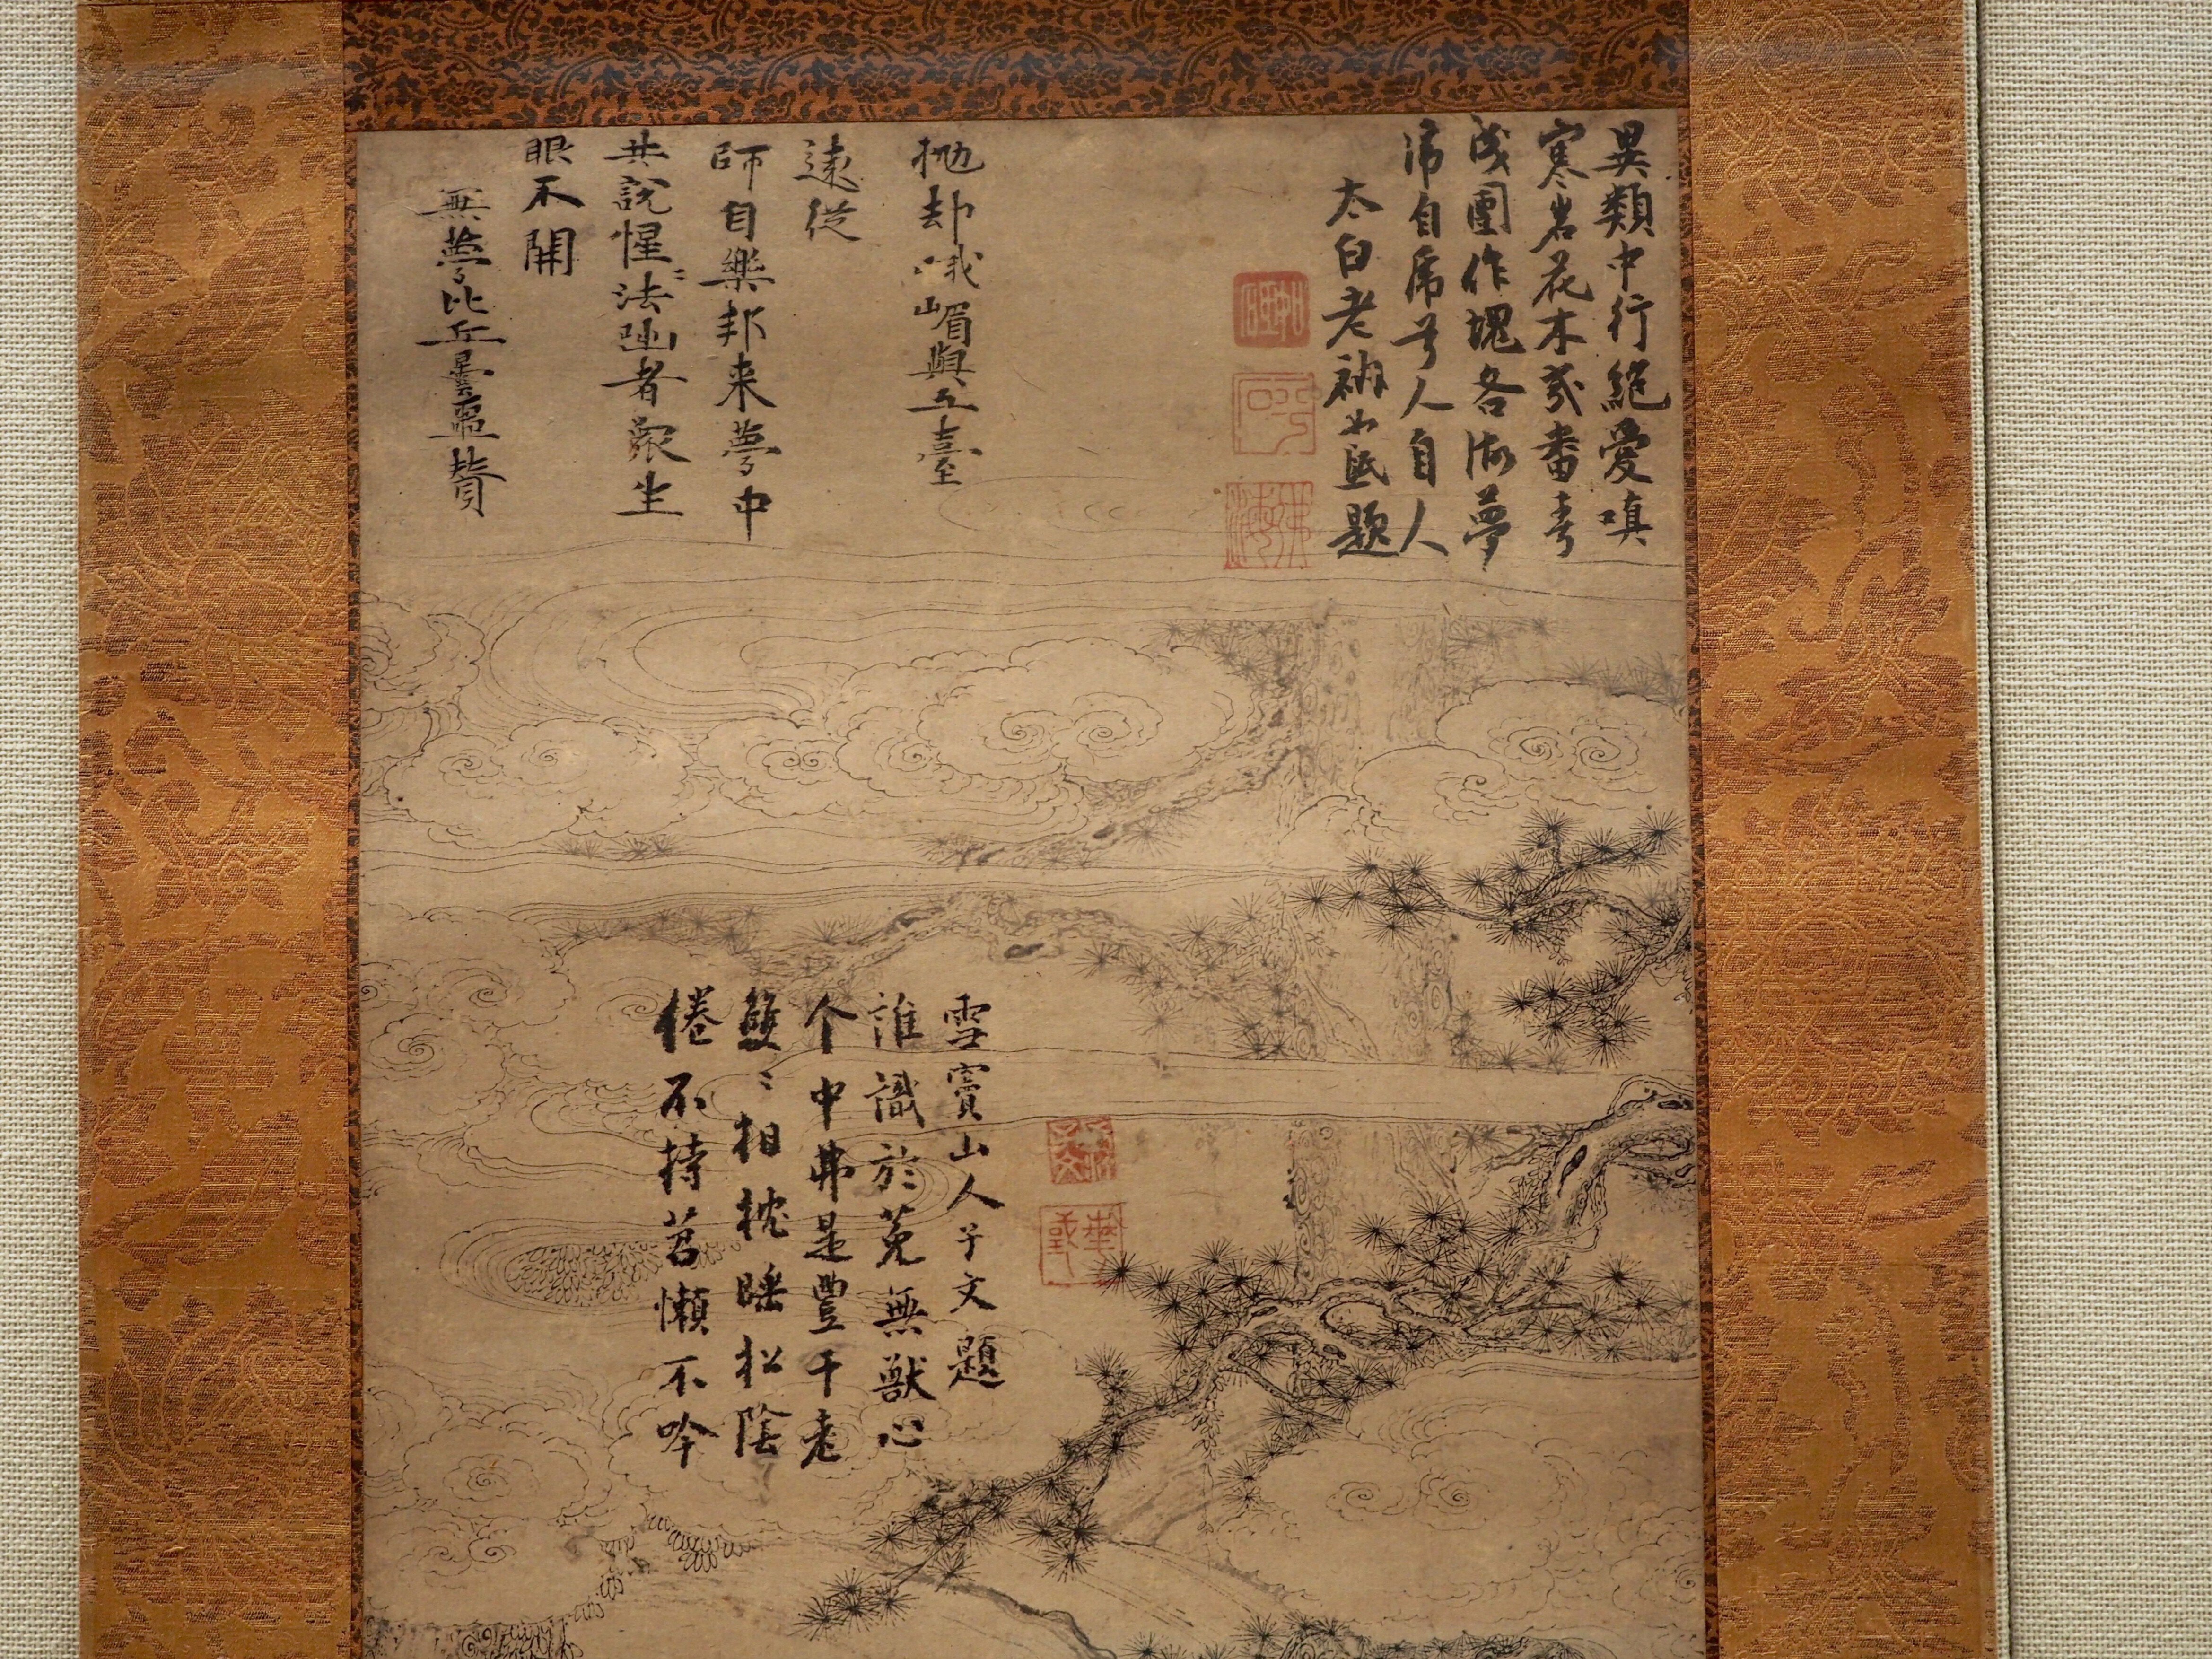 異類中行絕愛嗔
寒岩花木幾番春
成團作塊各做夢
虎自虎兮人自人
太白老衲如砥題
抛却峨嵋與五臺
遠從
師自樂邦来夢中
共說惺〻法者衆生
眼不開
無夢比丘曇噩賛
倦不持苕懶不吟
雙〻相枕睡松陰
个中弗是豐干老
誰識於菟無獣心
雪竇山人子文題